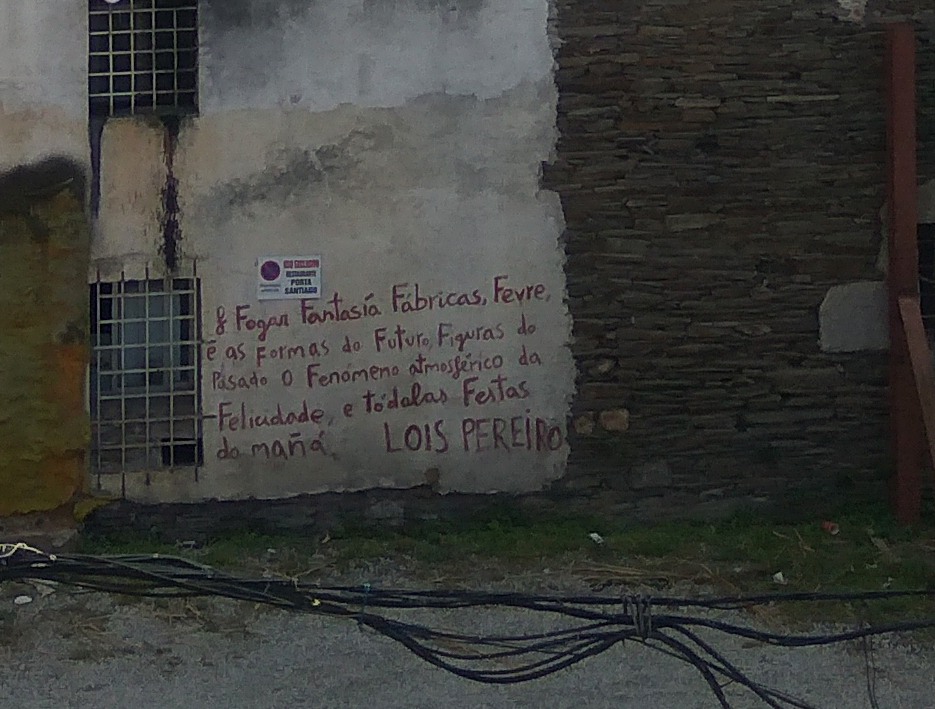 RESTAURANTE
PORTA
SANTIAGO
& Fogar Fantasía Fábricas, Fevre,
e as Formas do Futuro, Figuras do
Pasado O Fenómeno atmosférico da
Felicidade, e tódalas Festas
do mañá.
LOIS PEREIRO